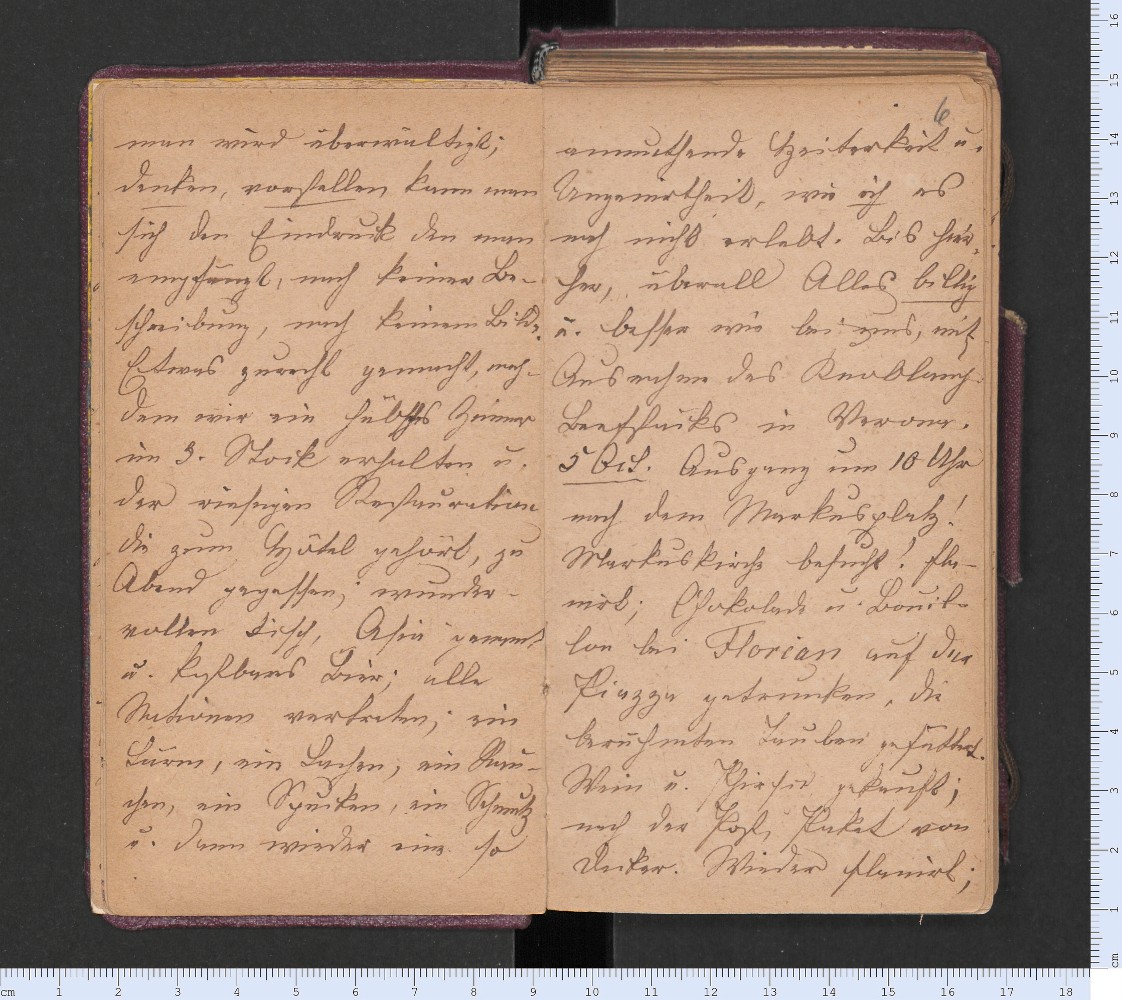 man wird überwältigt;
denken, vorstellen kann man
sich den Eindruck den man
empfängt, nach keiner Be-
schreibung, nach keinem Bilde.
Etwas zurecht gemacht, nach-
dem wir ein hübsches Zimmer
im 3. Stock erhalten u.
der riesigen Restauration
die zum Hôtel gehört, zu
Abend gegessen; wunder-
vollen Fisch, Asti
u. kostbares Bier; alle
Nationen vertreten; ein
Lärm, ein Lachen, ein Rau-
chen, ein Spucken, ein Schmutz
u. dann wieder eine so
6
anmuthende Heiterkeit u.
Ungenirtheit, wie ich es
noch nicht erlebt. Bis hier-
her, überall Alles billig
u. besser wie bei uns, mit
Ausnahme des Knoblauch-
Beefstücks in Verona.
5 Oct. Ausgang um 10 Uhr
nach dem Markusplatz!
Markuskirche besucht! fla-
nirt; Chokolade u. Bouil-
lon bei Florian auf der
Piazza getrunken, die
berühmten Tauben gefüttert.
Wein u. Pfirsic gekauft;
nach der Post, Paket von
Decker. Wieder flanirt;